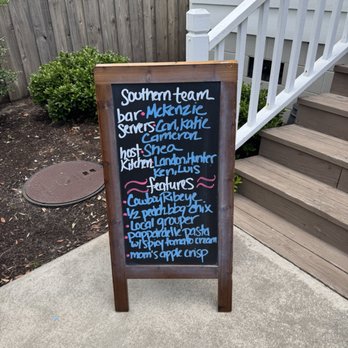 Southern team
bar • McKenzie
Servers: Cari, Katie
Cameron
host • Shea
Kitchen: Landon, Hunter
Ken, Luis
features
• Cowboy Ribeye
• 1/2 peach bbq chix
• Local grouper
• pappardelle pasta
w/ spicy tomato cream
• mom's apple crisp